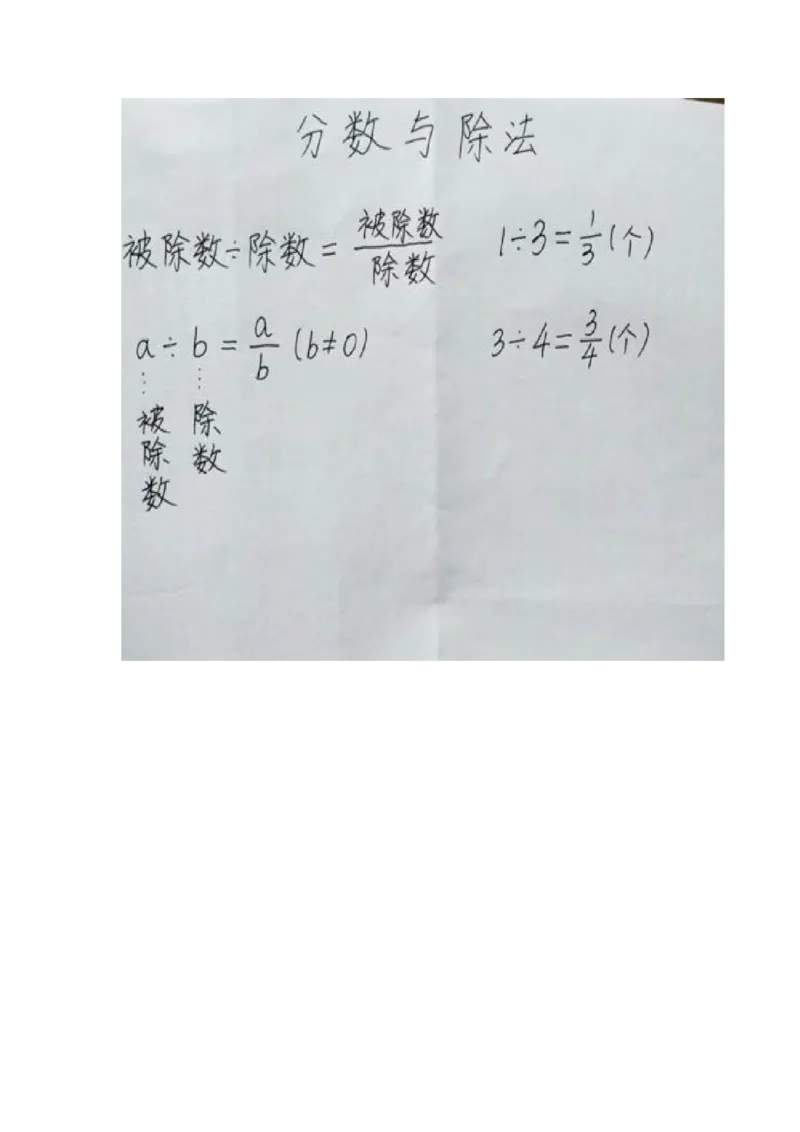 分数与除法
被除数÷除数=被除数/除数
1÷3=1/3(个)
a÷b=a/b(b≠0)
3÷4=3/4(个)
被除数
除数